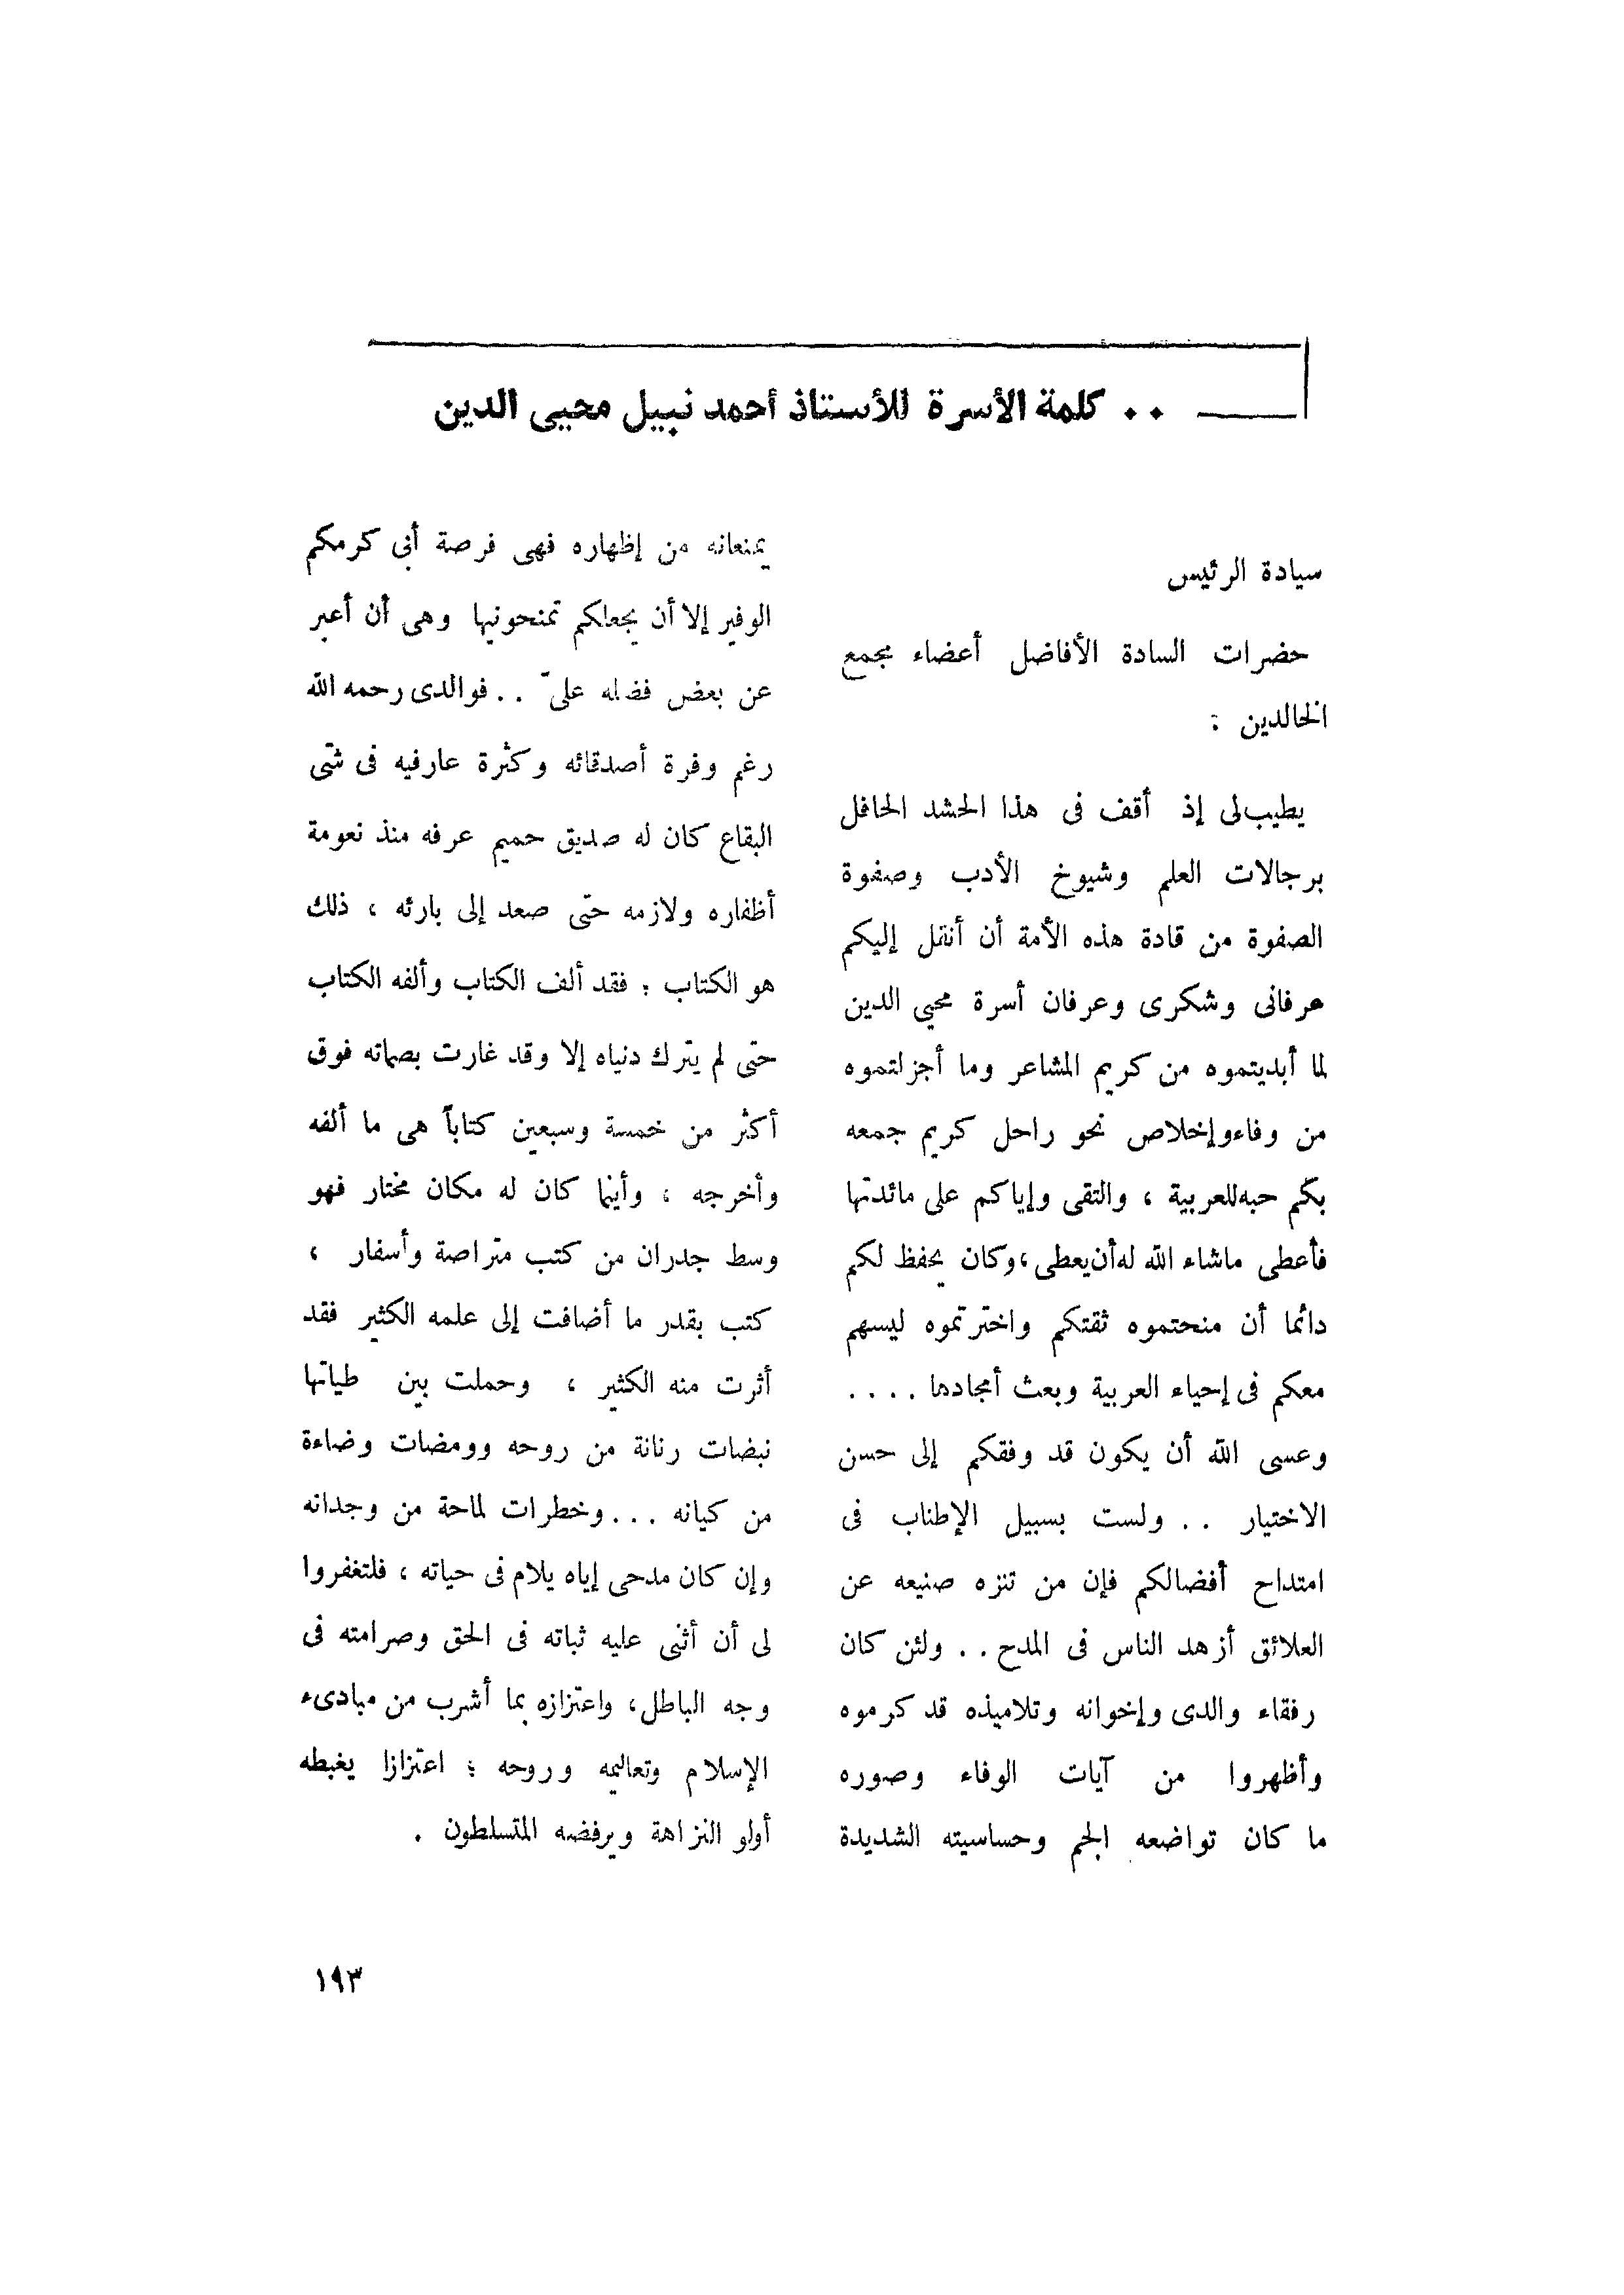 .. كلمة الأسرة للأستاذ أحمد نبيل محيى الدين
سيادة الرئيس
حضرات السادة الأفاضل أعضاء مجمع
الخالدين :
يطيب لى إذ أقف فى هذا الحشد الحافل
برجالات العلم وشيوخ الأدب وصفوة
الصفوة من قادة هذه الأمة أن أنقل إليكم
عرفانى وشكرى وعرفان أسرة محيي الدين
لما أبديتموه من كريم المشاعر وما أجزلتموه
من وفاء وإخلاص نحو راحل كريم جمعه
بكم حبه للعربية ، والتقى وإياكم على مائدتها
فأعطى ماشاء الله له أن يعطى ، وكان يحفظ لكم
دائما أن منحتموه ثقتكم واخترتموه ليسهم
معكم فى إحياء العربية وبعث أمجادها ....
وعسى الله أن يكون قد وفقكم إلى حسن
الاختيار .. ولست بسبيل الإطناب فى
امتداح أفضالكم فإن من تنزه صنيعه عن
العلائق أزهد الناس فى المدح .. ولئن كان
رفقاء والدى وإخوانه وتلاميذه قد كرموه
وأظهروا من آيات الوفاء وصوره
ما كان تواضعه الجم وحساسيته الشديدة
يمنعانه من إظهاره فهى فرصة أبى كرمكم
الوفير إلا أن يجعلكم تمنحونيها وهى أن أعبر
عن بعض فضله علىّ .. فوالدى رحمه الله
رغم وفرة أصدقائه وكثرة عارفيه فى شتى
البقاع كان له صديق حميم عرفه منذ نعومة
أظفاره ولازمه حتى صعد إلى بارئه ، ذلك
هو الكتاب : فقد ألف الكتاب وألفه الكتاب
حتى لم يترك دنياه إلا وقد غارت بصماته فوق
أكثر من خمسة وسبعين كتاباً هى ما ألفه
وأخرجه ، وأينما كان له مكان مختار فهو
وسط جدران من كتب متراصة وأسفار ،
كتب بقدر ما أضافت إلى علمه الكثير فقد
أثرت منه الكثير ، وحملت بين طياتها
نبضات رنانة من روحه وومضات وضاءة
من كيانه ... وخطرات لماحة من وجدانه
وإن كان مدحى إياه يلام فى حياته ، فلتغفروا
لى أن أثنى عليه ثباته فى الحق وصرامته فى
وجه الباطل، واعتزازه بما أشرب من مبادىء
الإسلام وتعاليمه وروحه ؛ اعتزازا يغبطه
أولو النزاهة ويرفضه المتسلطون .
١٩٣